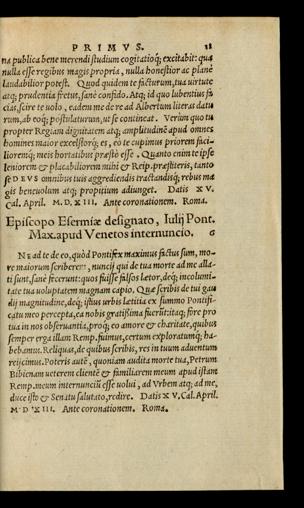 PRIMVS. 18
na publica bene merendi studium cogitatioq; excitabit: qua
nulla esse regibus magis propria, nulla honestior ac planè
laudabilior potest. Quod quidem te facturum, tua uirtute
atq; prudentia fretus, sanè confido. Atq; id quo lubentius fa
cias, scire te uolo, eadem me de re ad Albertum literas datu
rum, ab eoq; postulaturum, ut se contineat. Verùm quo tu
propter Regiam dignitatem atq; amplitudinẽ apud omnes
homines maior excelsiorq; es, eò te cupimus priorem faci-
lioremq; meis hortatibus præstò esse. Quanto enim te ipse
leniorem & placabiliorem mihi & Reip. præstiteris, tanto
se DEVS omnibus tuis aggrediendis tractandisq; rebus ma
gis beneuolum atq; propitium adiunget. Datis XV.
Cal. April. M. D. XIII. Ante coronationem. Roma.
Episcopo Eserniæ designato, Iulij Pont.
Max. apud Venetos internuncio. 6
NE ad te de eo, quòd Pontifex maximus factus sum, mo-
re maiorum scriberem, nuncij qui de tua morte ad me alla-
ti sunt, sanè fecerunt: quos fuisse falsos lætor, deq; incolumi-
tate tua uoluptatem magnam capio. Quæ scribis de tui gau
dij magnitudine, deq; istius urbis lætitia ex summo Pontifi-
catu meo percepta, ea nobis gratissima fuerũt: itaq; fore pro
tua in nos obseruantia, proq; eo amore & charitate, quibus
semper erga illam Remp. fuimus, certum exploratumq; ha-
bebamus. Reliquas, de quibus scribis, res in tuum aduentum
reijcimus. Poteris autẽ, quoniam audita morte tua, Petrum
Bibienam ueterem clientẽ & familiarem meum apud istam
Remp. meum internunciũ esse uolui, ad Vrbem atq; ad me,
duce isto & Senatu salutato, redire. Datis XV. Cal. April.
M D XIII. Ante coronationem. Roma.